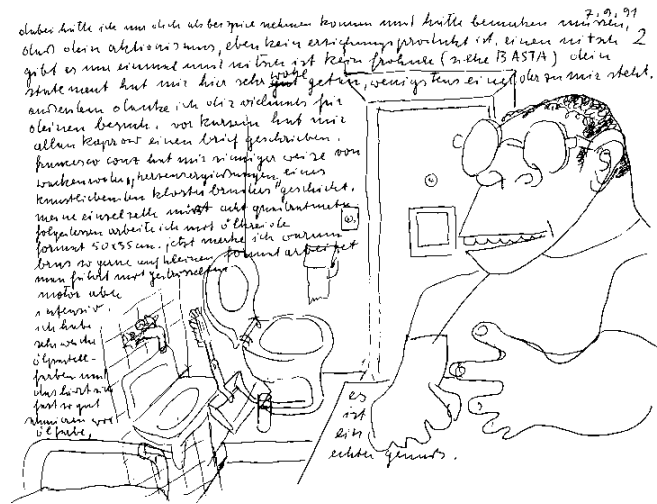 7.9.91
dabei hätte ich nur dich als beispiel nehmen können und hätte bemerken müssen,
2
daß dein aktionismus, eben kein erziehungsprodukt ist. einen nitsch
gibt es nur einmal und nitsch ist kein frohner (siehe BASTA) dein
statement hat mir hier sehr wohl getan, wenigstens einer der zu mir steht.
außerdem danke ich dir vielmals für
deinen besuch. vor kurzem hat mir
allan kaprow einen brief geschrieben.
francesco conz hat mir sinniger weise von
wackenroder „herzensergießungen eines
kunstliebenden klosterbruders" geschickt.
meine einzelzelle acht quadratmeter
folgedessen arbeite ich mit ölkreide
format 50x35cm. jetzt merke ich warum
brus so gerne auf kleinem format arbeitet
man fährt mit gedrosseltem
motor aber
intensiv.
ich habe
sehr weiche
ölpastell-
farben und
das lässt sich
fast so gut
schmieren wie
ölfarbe,
es
ist
ein
echter genuss.